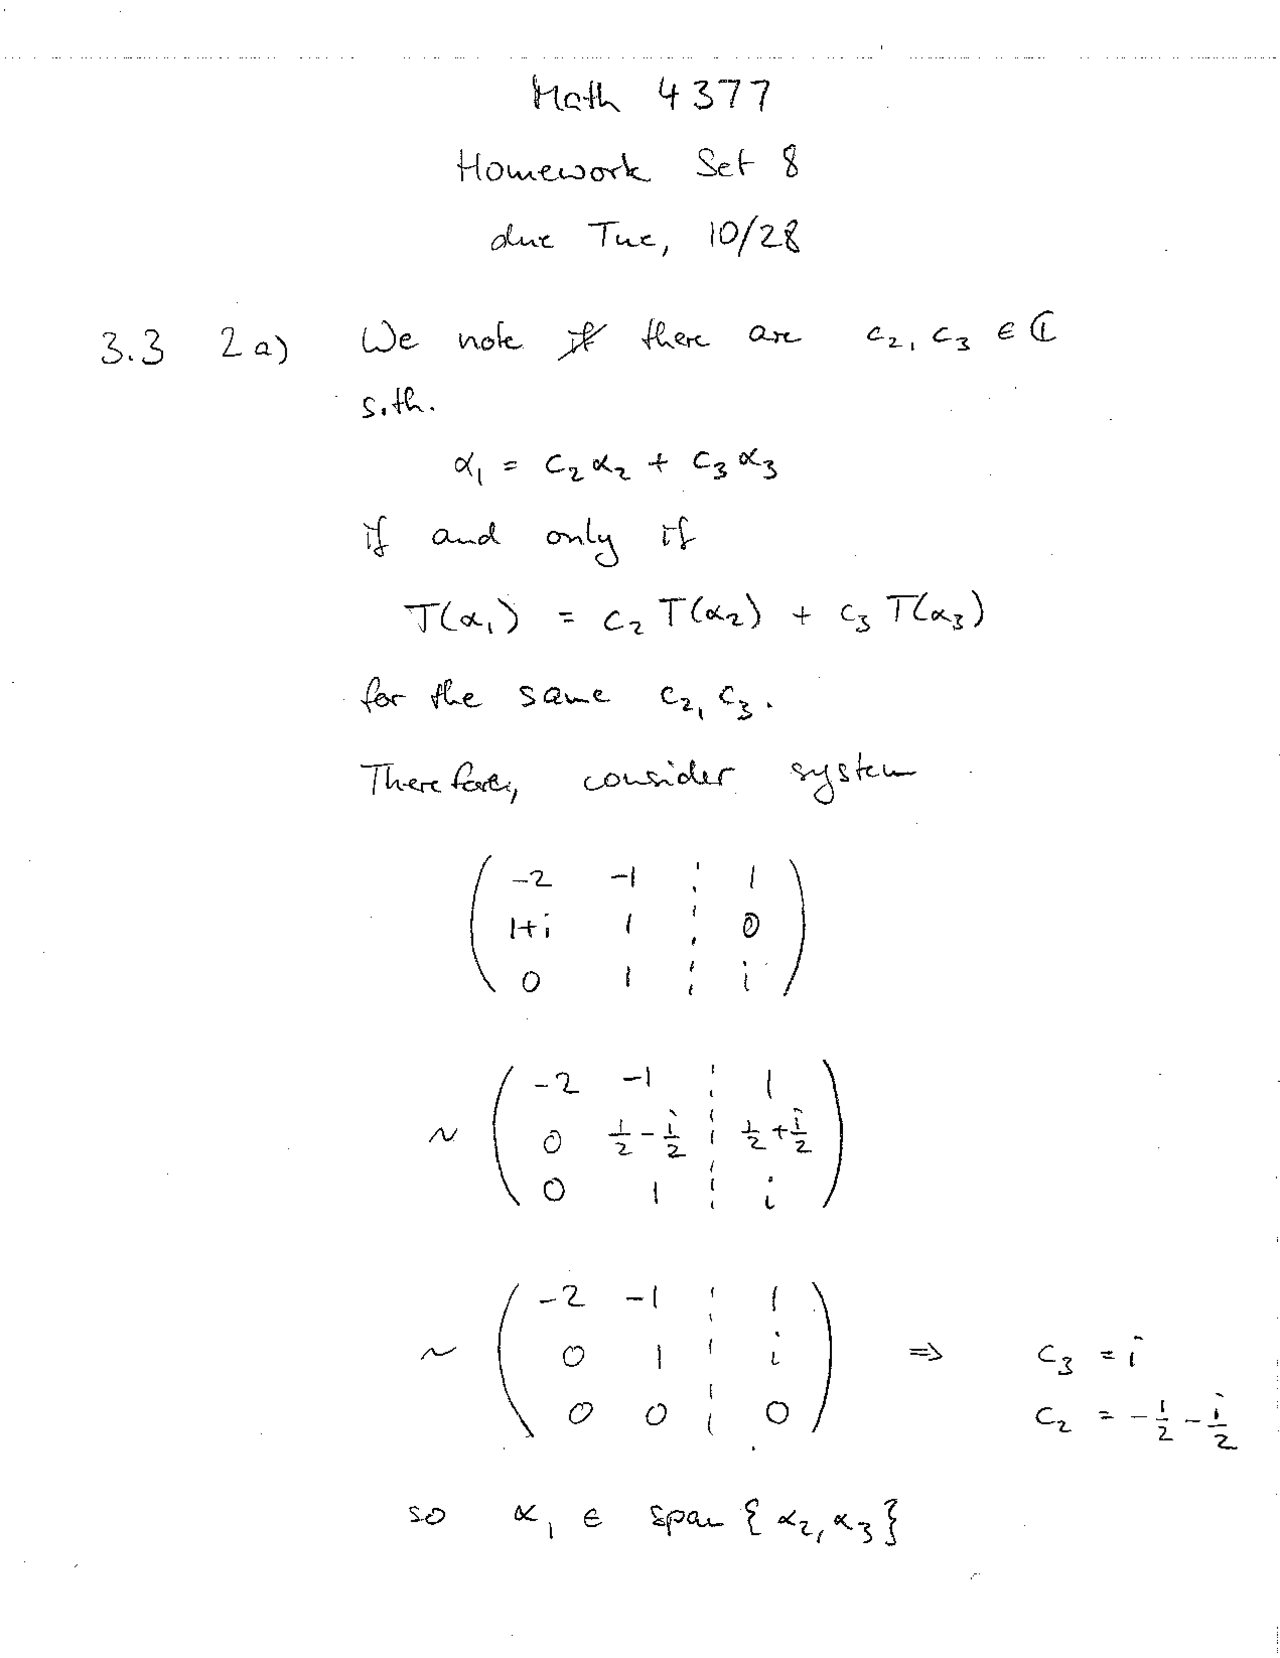 Math 4377
Homework Set 8
due Tue, 10/28
3.3 2a) We note there are c₂, c₃ ∈ ℂ
s.th.
α₁ = c₂α₂ + c₃α₃
if and only if
T(α₁) = c₂ T(α₂) + c₃ T(α₃)
for the same c₂, c₃.
Therefore, consider system
( -2 -1 ¦ 1 )
( 1+i 1 ¦ 0 )
( 0 1 ¦ i )
~ ( -2 -1 ¦ 1 )
( 0 1/2 - i/2 ¦ 1/2 + i/2 )
( 0 1 ¦ i )
~ ( -2 -1 ¦ 1 )
( 0 1 ¦ i ) ⇒ c₃ = i
( 0 0 ¦ 0 ) c₂ = -1/2 - i/2
so α₁ ∈ span {α₂, α₃}